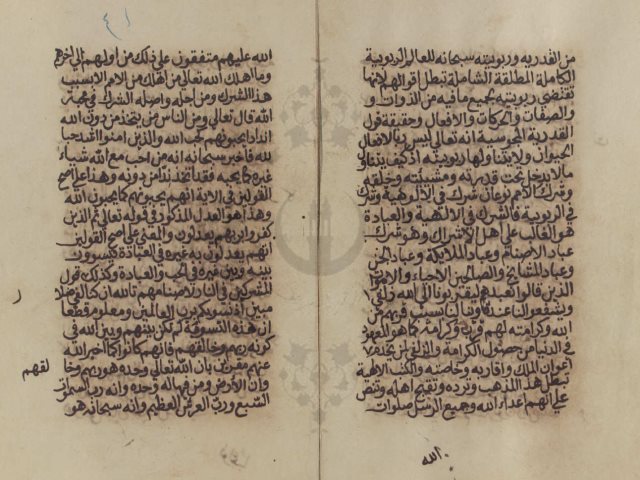 من القدرية وربوبيته سبحانه للعالم الربوبية
الكاملة المطلقة الشاملة تبطل اقوالهم لانها
تقتضي ربوبيته لجميع ما فيه من الذوات و
والصفات والحركات والافعال وحقيقة قول
القدرية المجوسية انه تعالى ليس ربا لافعال
الحيوان ولا يتناولها ربوبيته اذ كيف يتناول
ما لا يدخل تحت قدرته ومشيئته وخلقه
وشرك الامم نوعان شرك في الالوهية وشرك
في الربوبية فالشرك في الالهية والعبادة
هو الغالب على اهل الاشراك وهو شرك
عباد الاصنام وعباد الملائكة وعباد الجن
وعباد المشايخ والصالحين الاحياء والاموات
الذين قالوا نعبدهم ليقربونا الى الله زلفى
ويشفعوا لنا عنده وينالنا بسبب قربهم من
الله وكرامته لهم قرب وكرامة كما هو المعهود
في الدنيا من حصول الكرامة والزلفى لمن يخدم
اعوان الملك واقاربه وخاصته والكتب الالهية
تبطل هذا المذهب وترده وتقبح اهله وتنص
على انهم اعداء الله وجميع الرسل صلوات
الله
الله عليهم متفقون على ذلك من اولهم الى اخرهم
وما اهلك الله تعالى من اهلك من الامم الا بسبب
هذا الشرك ومن اجله واصله الشرك في محبة
الله قال تعالى ومن الناس من يتخذ من دون الله
اندادا يحبونهم كحب الله والذين امنوا اشد حبا
لله فاخبر سبحانه انه من احب مع الله شيئا
غيره كما يحبه فقد اتخذ ندا من دونه وهذا على اصح
القولين في الاية انهم يحبونهم كما يحبون الله
وهذا هو العدل المذكور في قوله تعالى ثم الذين
كفروا بربهم يعدلون والمعنى على اصح القولين
انهم يعدلون به غيره في العبادة فيسوون
بينه وبين غيره في الحب والعبادة وكذلك قول
المشركين في النار لاصنامهم تالله ان كنا لفي ضلال
مبين اذ نسويكم برب العالمين ومعلوم قطعا
ان هذه التسوية لم تكن بينهم وبين الله في
كونه ربهم وخالقهم فانهم كانوا كما اخبر الله
عنهم مقرين بان الله تعالى وحده هو ربهم وخا
لقهم
وان الارض ومن فيها له وحده وانه رب السموات
السبع ورب العرش العظيم وانه سبحانه هو